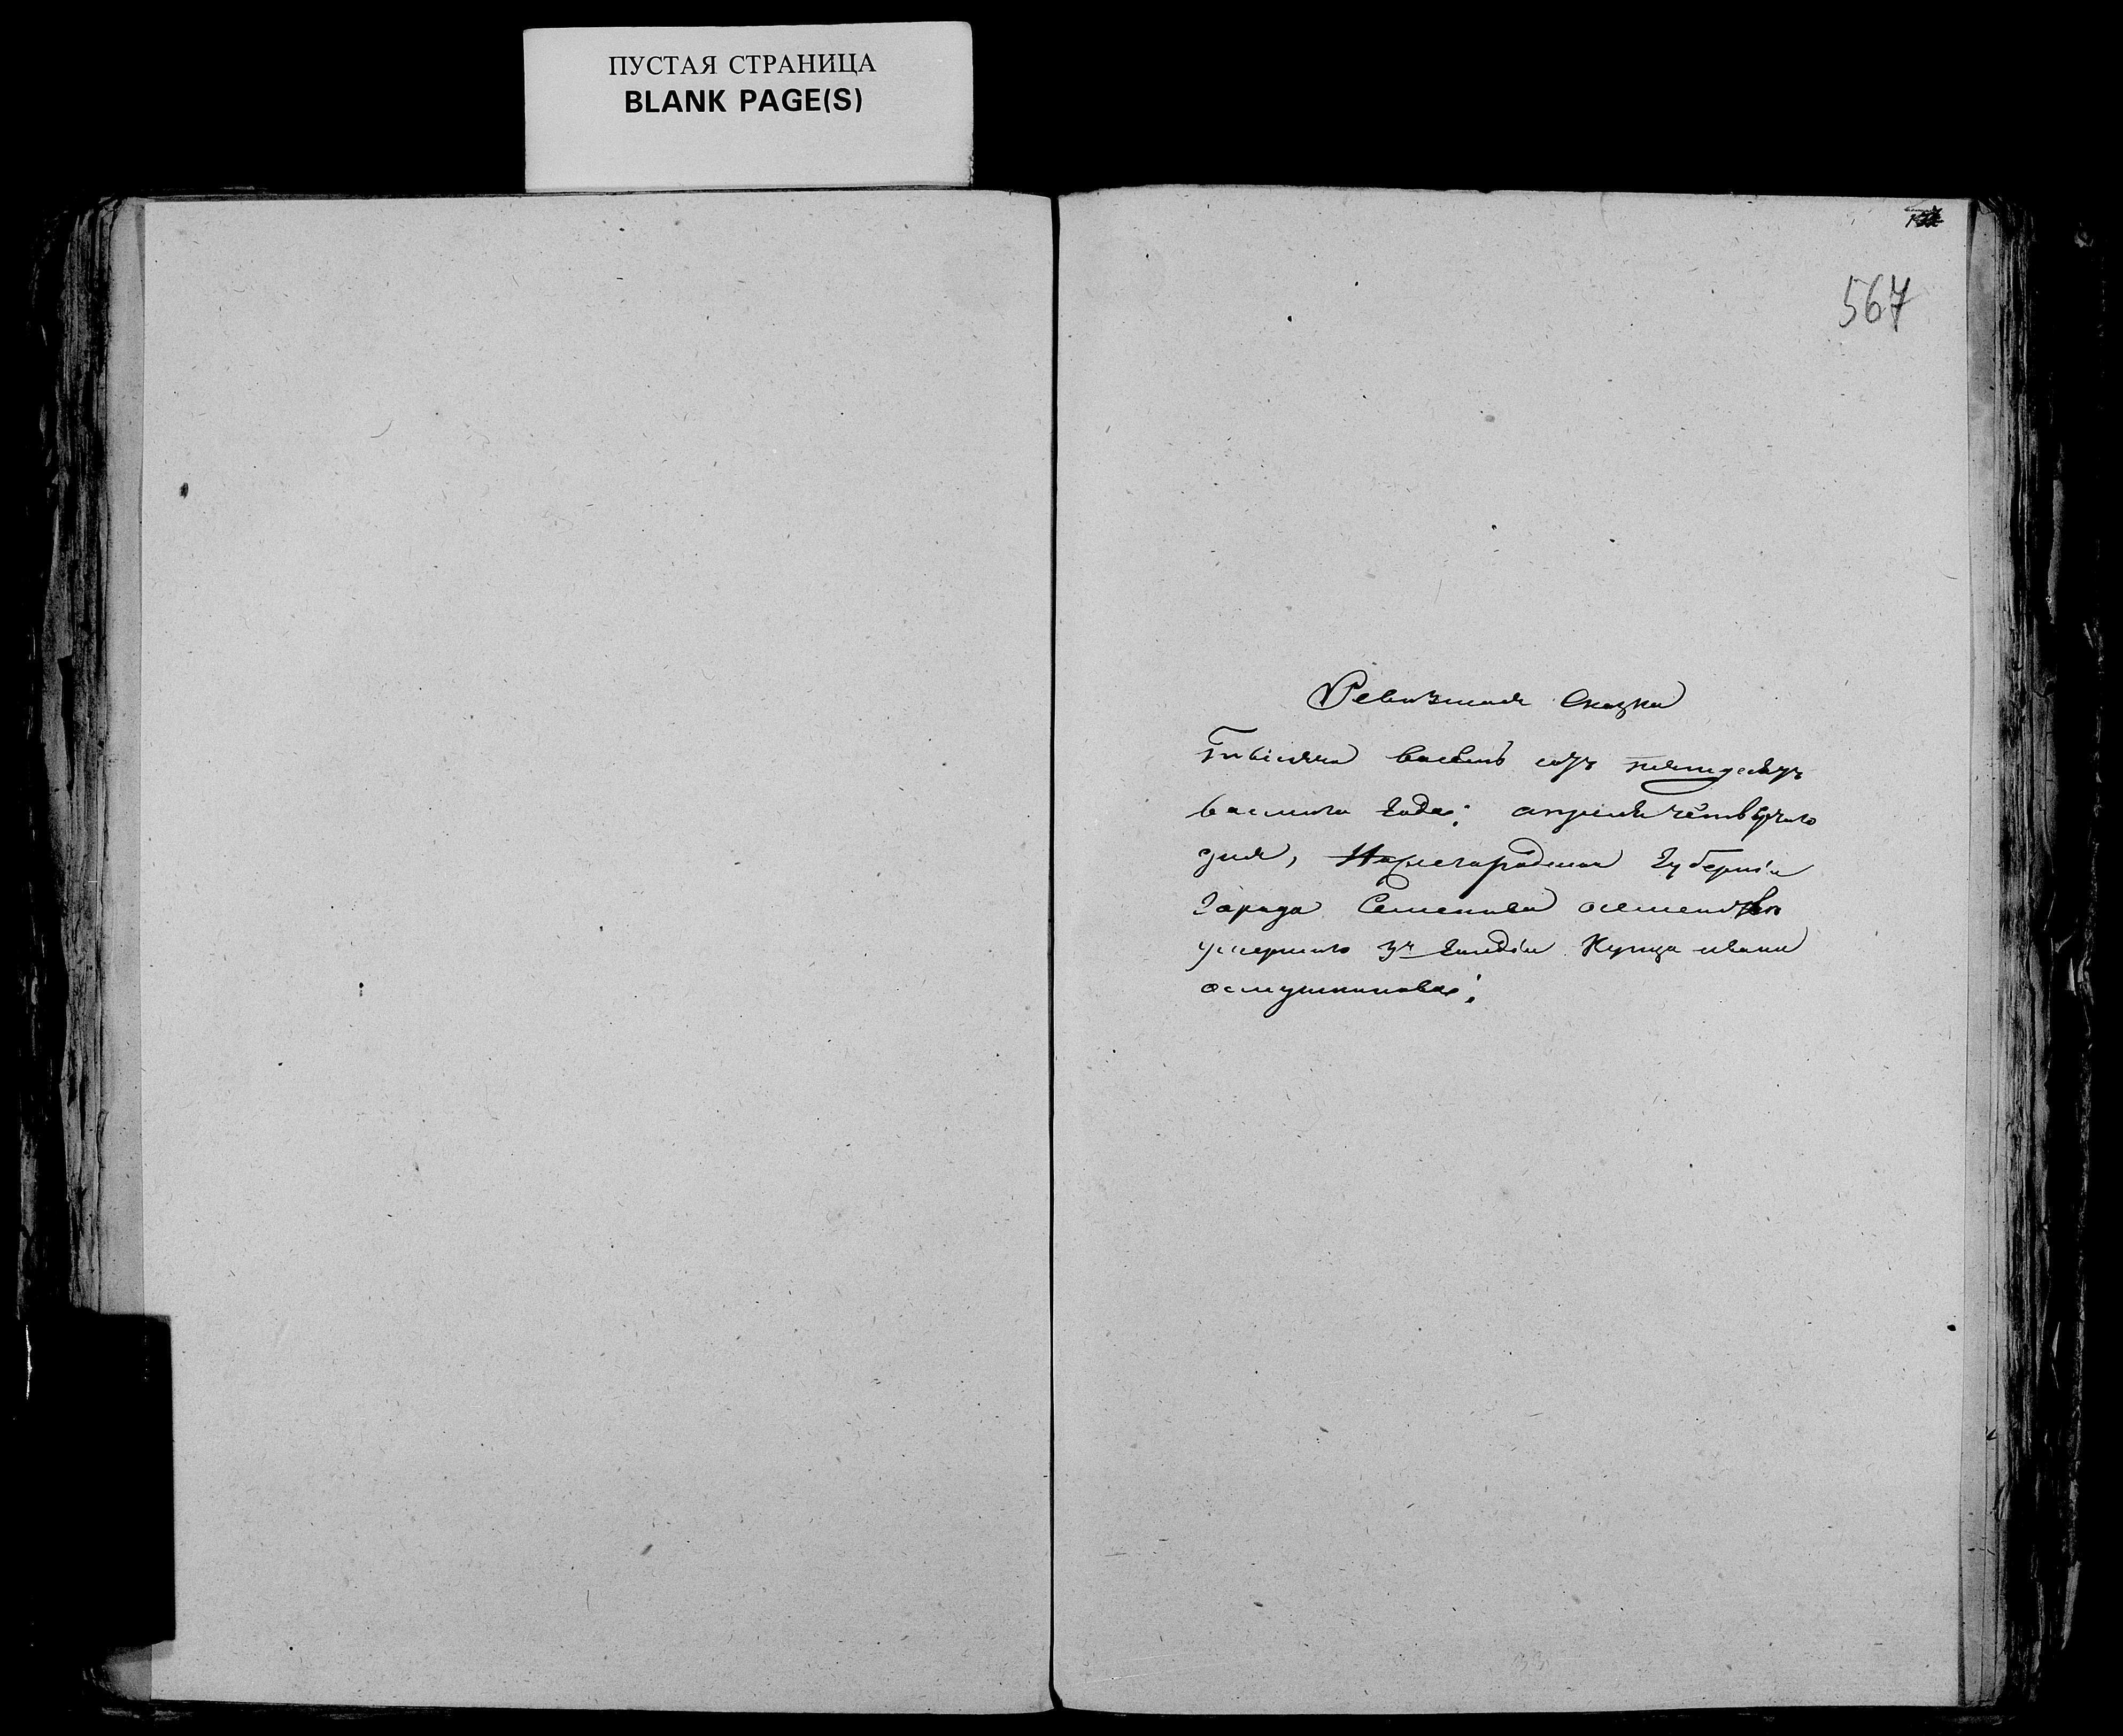 ПУСТАЯ СТРАНИЦА
BLANK PAGE(S)
567
Ревизшая Сказка
Тысяча васемь сотъ пятидесятъ
васмого года; апреля четвертого
дня, Нажегородская Губернiи
Города Семенова осемействе
умершего 3й Гилдiи Купца ивана
осмушникова;